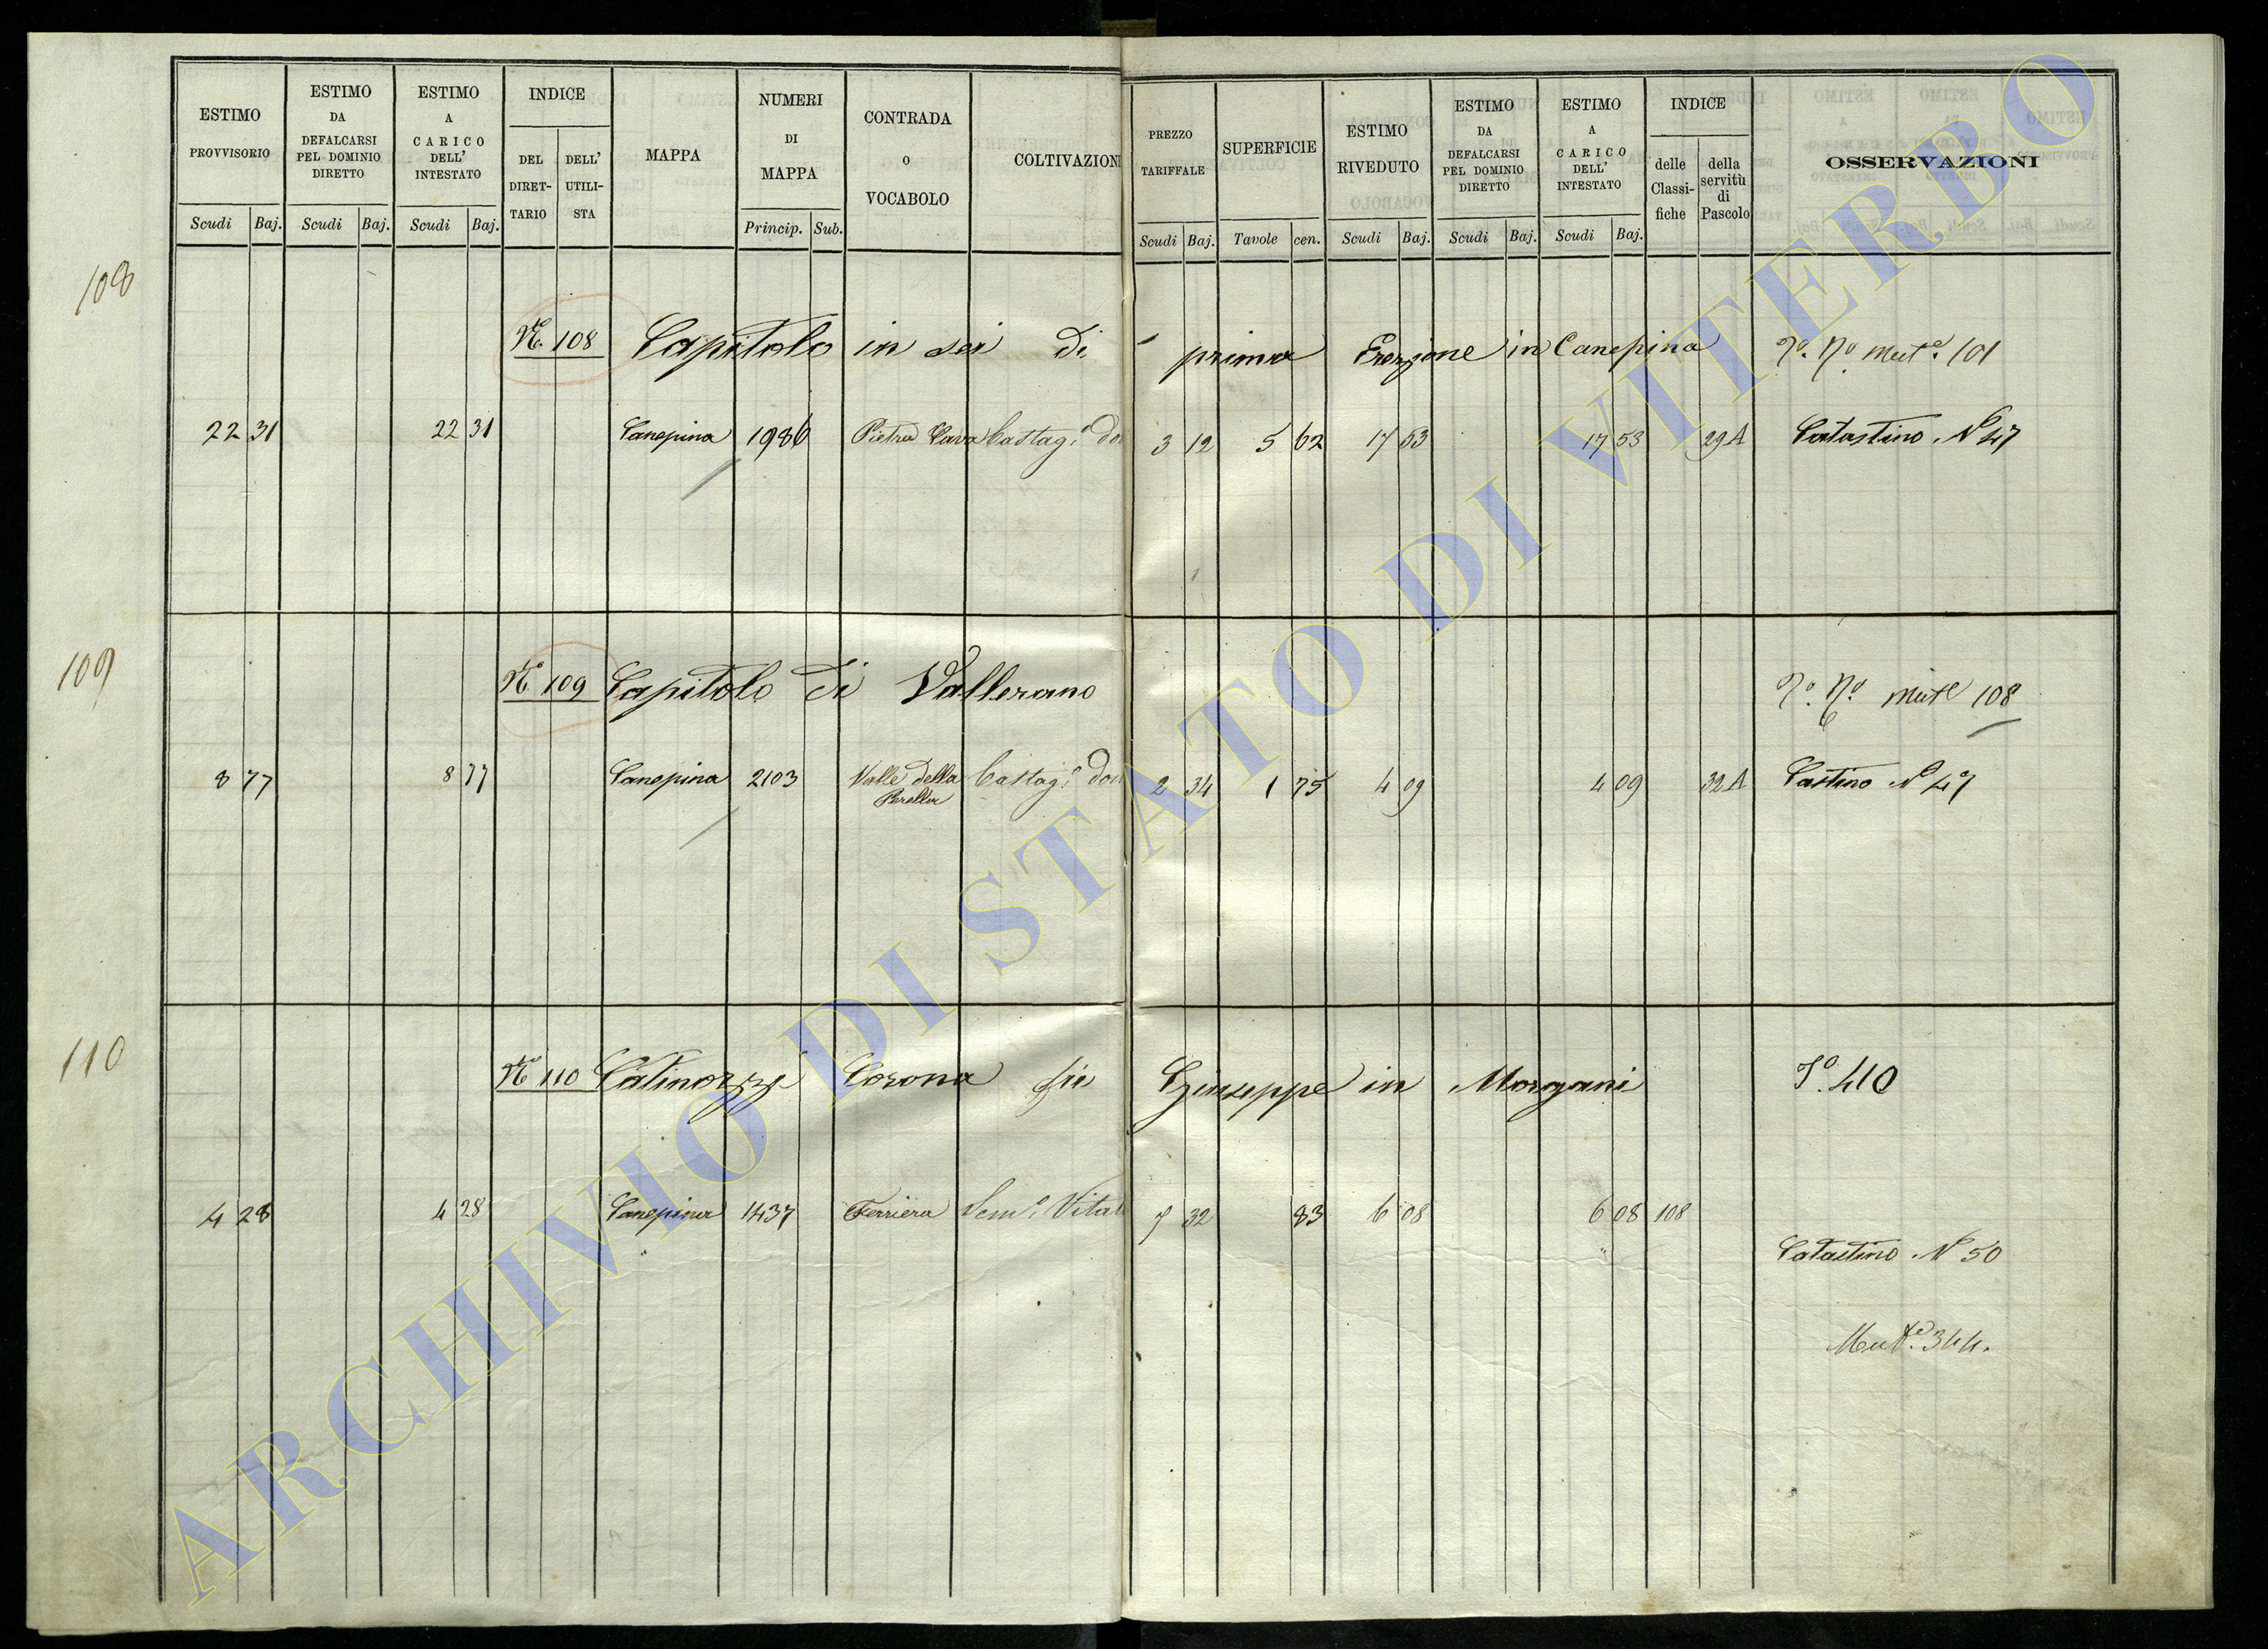 ESTIMO PROVVISORIO
ESTIMO DA DEFALCARSI PEL DOMINIO DIRETTO
ESTIMO A CARICO DELL' INTESTATO
INDICE
DEL DIRET-TARIO
DELL' UTILI-STA
MAPPA
NUMERI DI MAPPA
CONTRADA O VOCABOLO
COLTIVAZION
PREZZO TARIFFALE
SUPERFICIE
ESTIMO RIVEDUTO
ESTIMO DA DEFALCARSI PEL DOMINIO DIRETTO
ESTIMO A CARICO DELL' INTESTATO
INDICE
delle Classi-fiche
della servitù di Pascolo
OSSERVAZIONI
Scudi Baj. Scudi Baj. Scudi Baj. Princip. Sub. Scudi Baj. Tavole cen. Scudi Baj. Scudi Baj. Scudi Baj.
108
N.° 108 Capitolo in sei di prima Erezione in Canepina
N.° mut.e 101
22 31 22 31 Canepina 1986 Pietra Cava Castag.° do 3 12 5 62 17 53 17 53 29 A Catastino N° 47
109
N° 109 Capitolo di Vallerano
N.° mut.e 108
8 77 8 77 Canepina 2103 Valle della Castag.° Do 2 34 1 75 4 09 4 09 32 A Castino N° 47
110
N° 110 Catinozzi Corona fu Giuseppe in Morgani
410
4 28 4 28 Canepina 1437 Ferriera Sem.° Vitat 7 32 83 6 08 6 08 108
Catastino N° 50
Mut.e 344.
ARCHIVIO DI STATO DI VITERBO